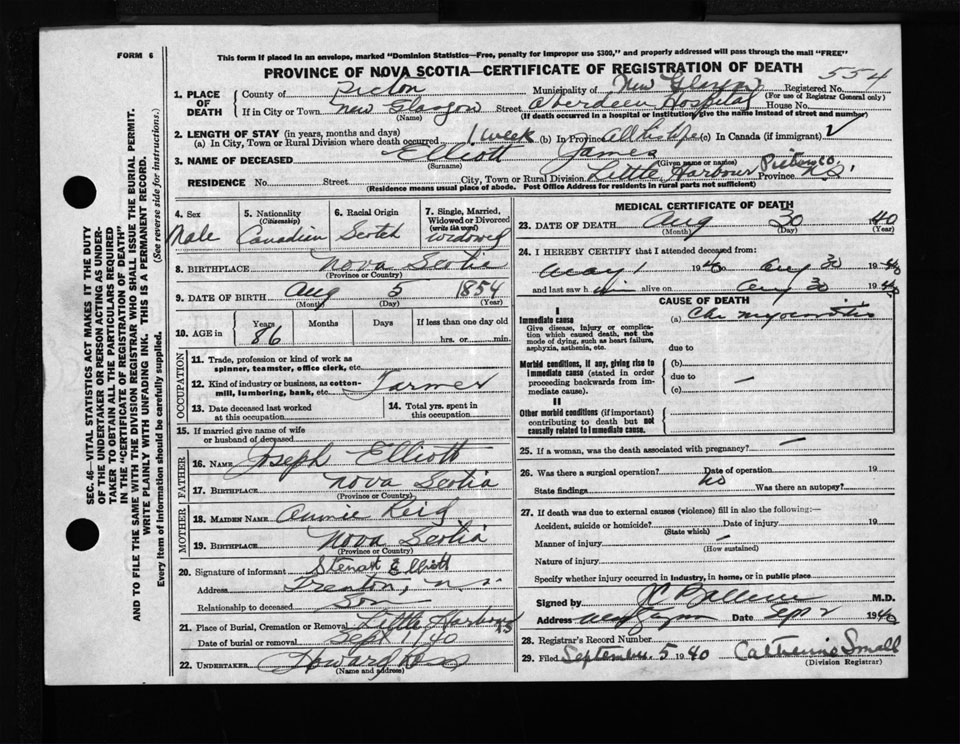 FORM 6
This form if placed in an envelope, marked "Dominion Statistics—Free, penalty for improper use $300," and properly addressed will pass through the mail "FREE"
PROVINCE OF NOVA SCOTIA—CERTIFICATE OF REGISTRATION OF DEATH
554
1. PLACE OF DEATH
County of Pictou Municipality of New Glasgow Registered No.
(For use of Registrar General only)
If in City or Town New Glasgow Street Aberdeen Hospital House No.
(Name) (If death occurred in a hospital or institution, give the name instead of street and number)
2. LENGTH OF STAY (in years, months and days)
(a) In City, Town or Rural Division where death occurred 1 week (b) In Province all his life (c) In Canada (if immigrant)
3. NAME OF DECEASED Elliott James
(Surname) (Given name or names)
RESIDENCE No. Street City, Town or Rural Division Little Harbour Pictou Co Province N.S.
(Residence means usual place of abode. Post Office Address for residents in rural parts not sufficient)
4. Sex
Male
5. Nationality (Citizenship)
Canadian
6. Racial Origin
Scotch
7. Single, Married, Widowed or Divorced (write the word)
widowed
8. BIRTHPLACE Nova Scotia
(Province or Country)
9. DATE OF BIRTH Aug 5 1854
(Month) (Day) (Year)
10. AGE in
Years Months Days If less than one day old
86 hrs. or min.
OCCUPATION
11. Trade, profession or kind of work as
spinner, teamster, office clerk, etc.
12. Kind of industry or business, as cotton-
mill, lumbering, bank, etc. Farmer
13. Date deceased last worked
at this occupation
14. Total yrs. spent in
this occupation
15. If married give name of wife
or husband of deceased
FATHER
16. NAME Joseph Elliott
17. BIRTHPLACE Nova Scotia
(Province or Country)
MOTHER
18. MAIDEN NAME Annie Reid
19. BIRTHPLACE Nova Scotia
(Province or Country)
20. Signature of informant Stewart Elliott
Address Trenton, N.S.
Relationship to deceased Son
21. Place of Burial, Cremation or Removal Little Harbour NS
Date of burial or removal Sept 1/40
22. UNDERTAKER Howard Ross
(Name and address)
MEDICAL CERTIFICATE OF DEATH
23. DATE OF DEATH Aug 30 40
(Month) (Day) (Year)
24. I HEREBY CERTIFY that I attended deceased from:
May 1 1940 to Aug 30 1940
and last saw him alive on Aug 30 1940
CAUSE OF DEATH
I
Immediate cause (a) Chr myocarditis
Give disease, injury or complica-
tion which caused death, not the
mode of dying, such as heart failure,
asphyxia, asthenia, etc.
due to
Morbid conditions, if any, giving rise to
immediate cause (stated in order
proceeding backwards from im-
mediate cause).
(b)
due to —
(c)
II
Other morbid conditions (if important)
contributing to death but not
causally related to immediate cause.
25. If a woman, was the death associated with pregnancy? —
26. Was there a surgical operation? no Date of operation 19
State findings Was there an autopsy?
27. If death was due to external causes (violence) fill in also the following:—
Accident, suicide or homicide? Date of injury 19
(State which)
Manner of injury
(How sustained)
Nature of injury
Specify whether injury occurred in industry, in home, or in public place
Signed by M.D.
Address Date Sept 2 1940
28. Registrar's Record Number
29. Filed September 5 1940 Catherine Small
(Division Registrar)
SEC. 46—VITAL STATISTICS ACT MAKES IT THE DUTY
OF THE UNDERTAKER OR PERSON ACTING AS UNDER-
TAKER TO OBTAIN ALL THE PARTICULARS REQUIRED
IN THE "CERTIFICATE OF REGISTRATION OF DEATH"
AND TO FILE THE SAME WITH THE DIVISION REGISTRAR WHO SHALL ISSUE THE BURIAL PERMIT.
WRITE PLAINLY WITH UNFADING INK. THIS IS A PERMANENT RECORD.
Every item of information should be carefully supplied. (See reverse side for instructions.)